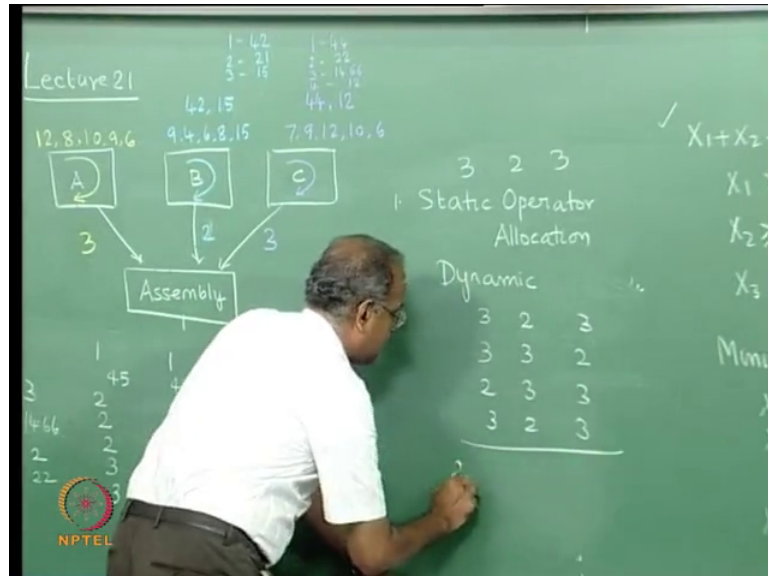 Lecture 21
1 - 42
2 - 21
3 - 15
1 - 44
2 - 22
3 - 14.66
4 - 12
42, 15
44, 12
12, 8, 10, 9, 6
9, 4, 6, 8, 15
7, 9, 12, 10, 6
A
B
C
3
2
3
Assembly
3
1466
2
22
1
45
2
2
2
3
3
1
3 2 3
1. Static Operator
Allocation
Dynamic
3 2 3
3 3 2
2 3 3
3 2 3
✓
X1 + X2
X1
X2 ≥
X3
NPTEL